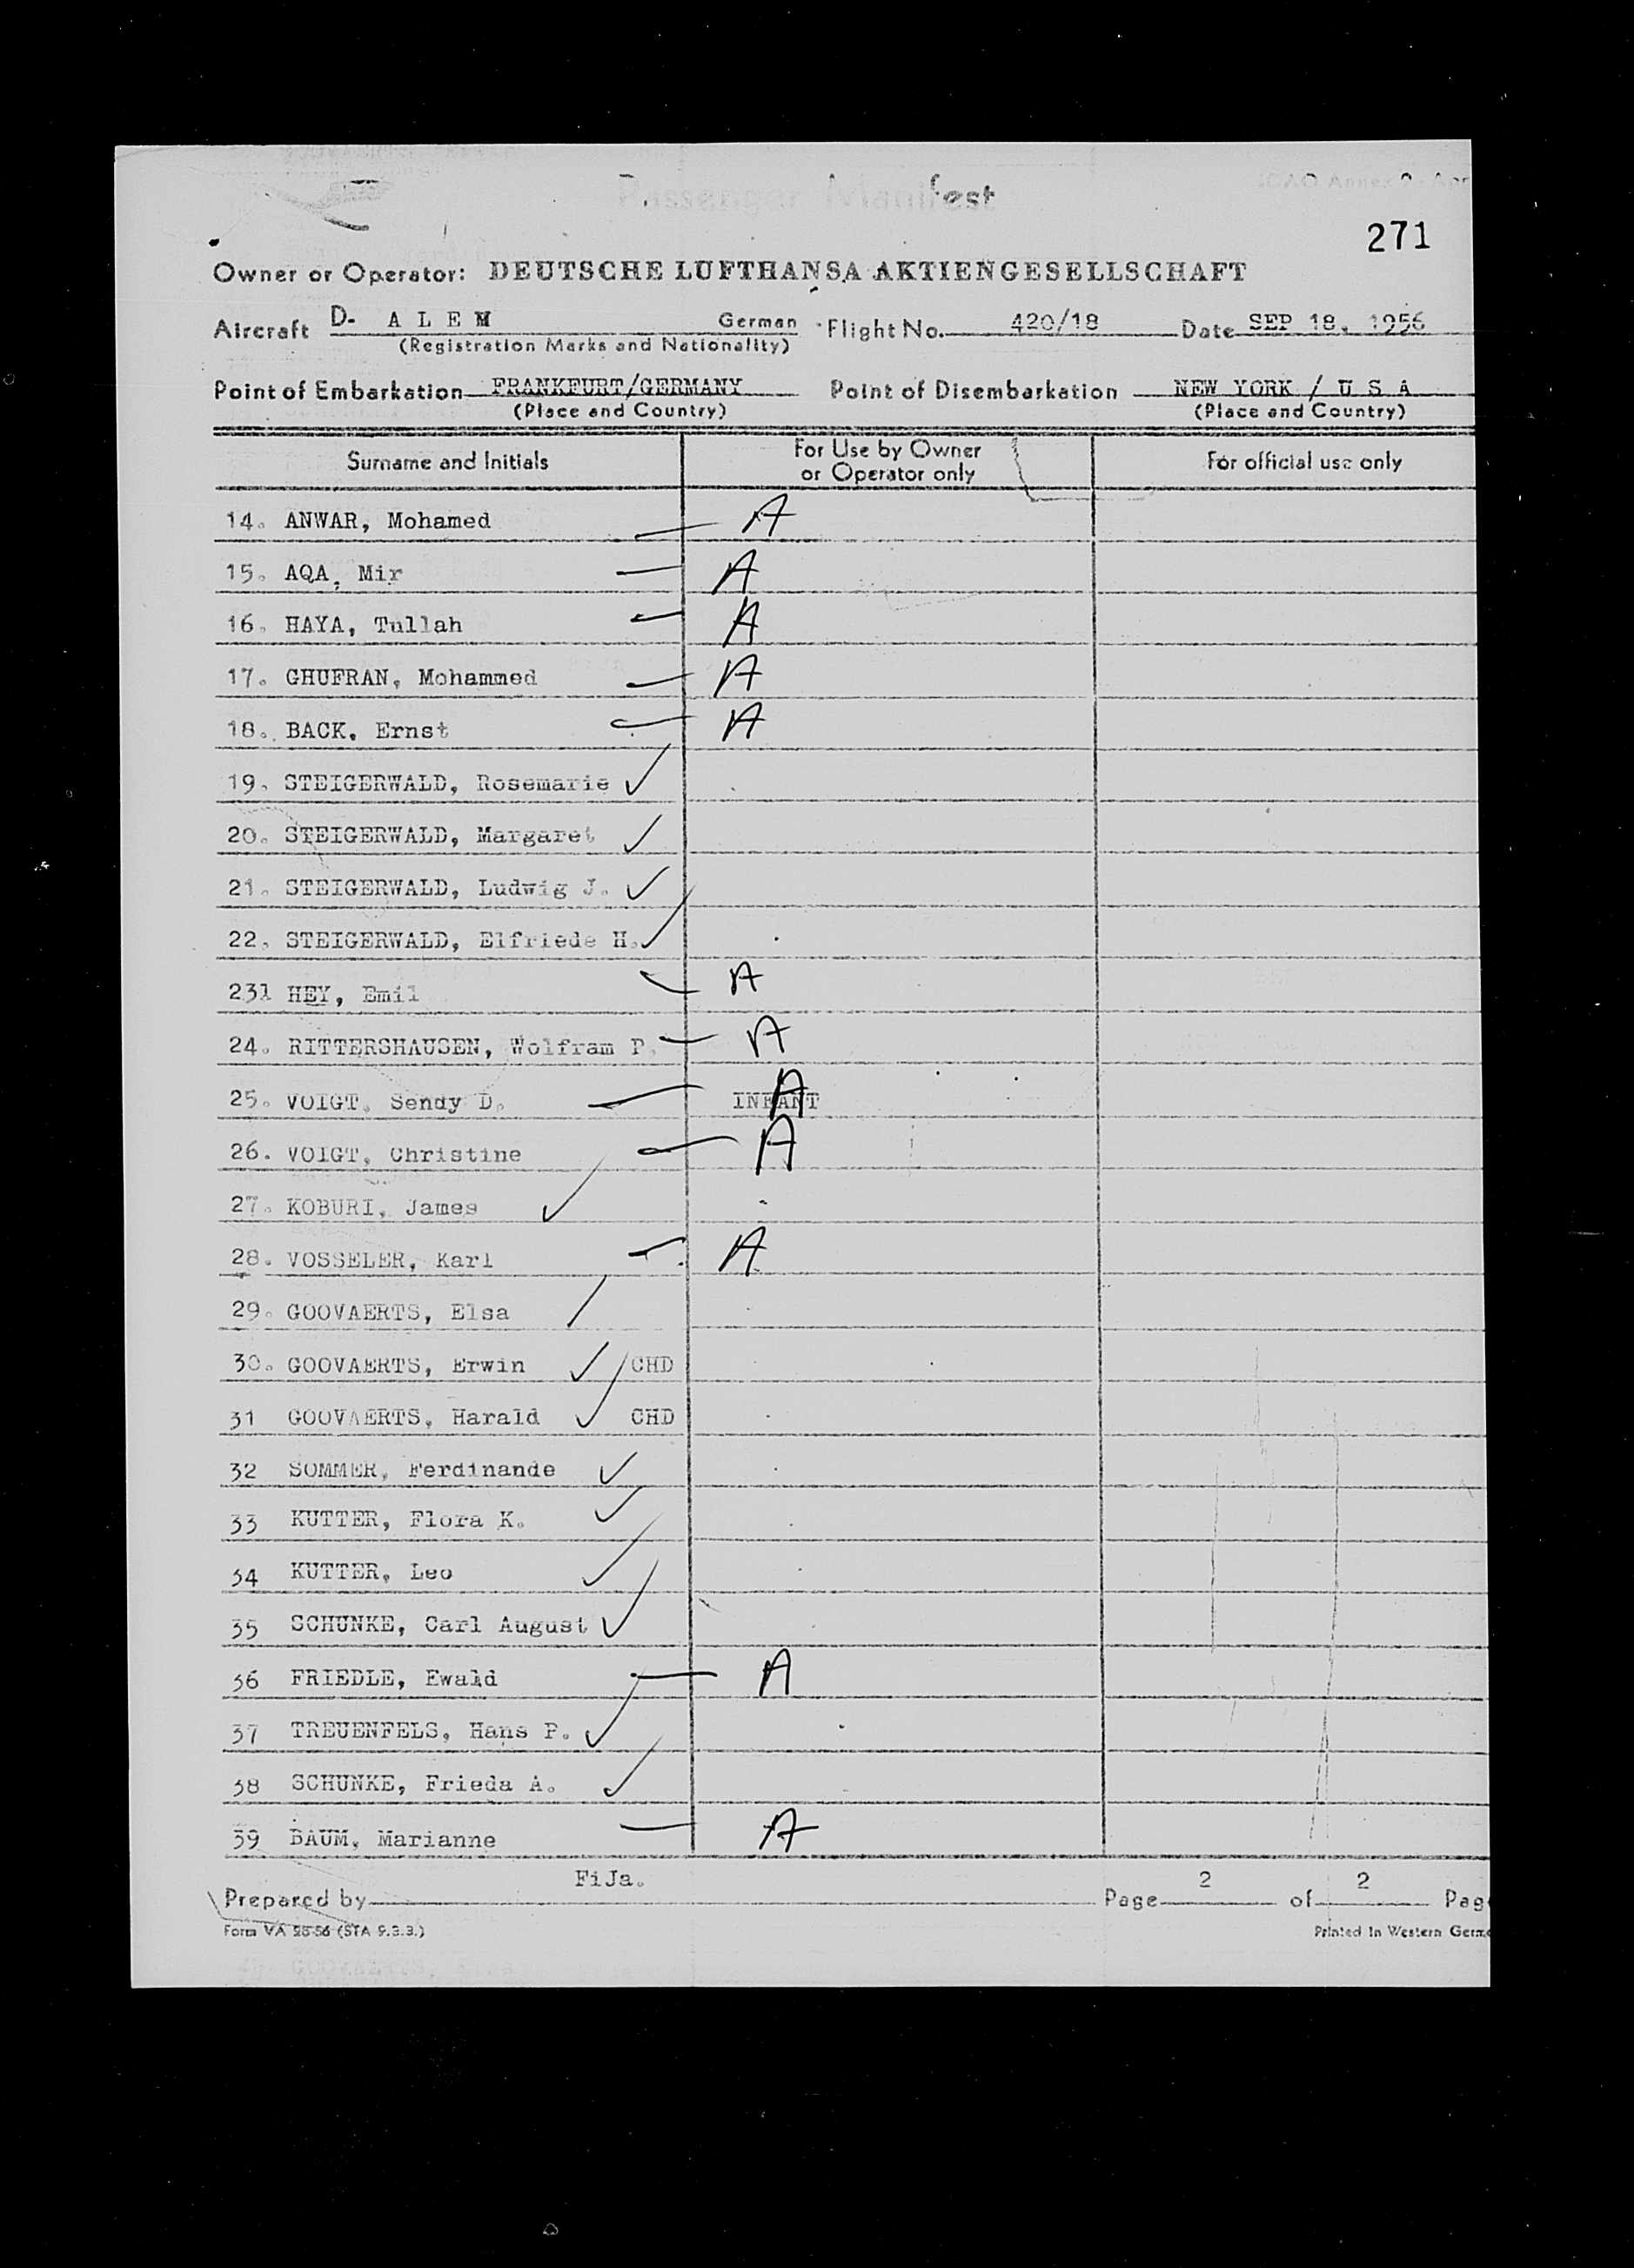 Passenger Manifest
271
Owner or Operator: DEUTSCHE LUFTHANSA AKTIENGESELLSCHAFT
Aircraft D- A L E M German Flight No. 420/18 Date SEP 18, 1956
(Registration Marks and Nationality)
Point of Embarkation FRANKFURT/GERMANY Point of Disembarkation NEW YORK / U S A
(Place and Country) (Place and Country)
Surname and Initials For Use by Owner or Operator only For official use only
14. ANWAR, Mohamed A
15. AQA, Mir A
16. HAYA, Tullah A
17. GHUFRAN, Mohammed A
18. BACK, Ernst A
19. STEIGERWALD, Rosemarie ✓
20. STEIGERWALD, Margaret ✓
21. STEIGERWALD, Ludwig J. ✓
22. STEIGERWALD, Elfriede H. ✓
231 HEY, Emil A
24. RITTERSHAUSEN, Wolfram P. A
25. VOIGT, Sendy D. INFANT A
26. VOIGT, Christine A
27. KOBURI, James ✓
28. VOSSELER, Karl A
29. GOOVAERTS, Elsa
30. GOOVAERTS, Erwin ✓ CHD
31 GOOVAERTS, Harald ✓ CHD
32 SOMMER, Ferdinande ✓
33 KUTTER, Flora K. ✓
34 KUTTER, Leo ✓
35 SCHUNKE, Carl August ✓
36 FRIEDLE, Ewald A
37 TREUENFELS, Hans P. ✓
38 SCHUNKE, Frieda A. ✓
39 BAUM, Marianne A
FiJa.
Prepared by Page 2 of 2 Pag
Form VA 28-56 (STA 9.3.3.) Printed in Western Germ